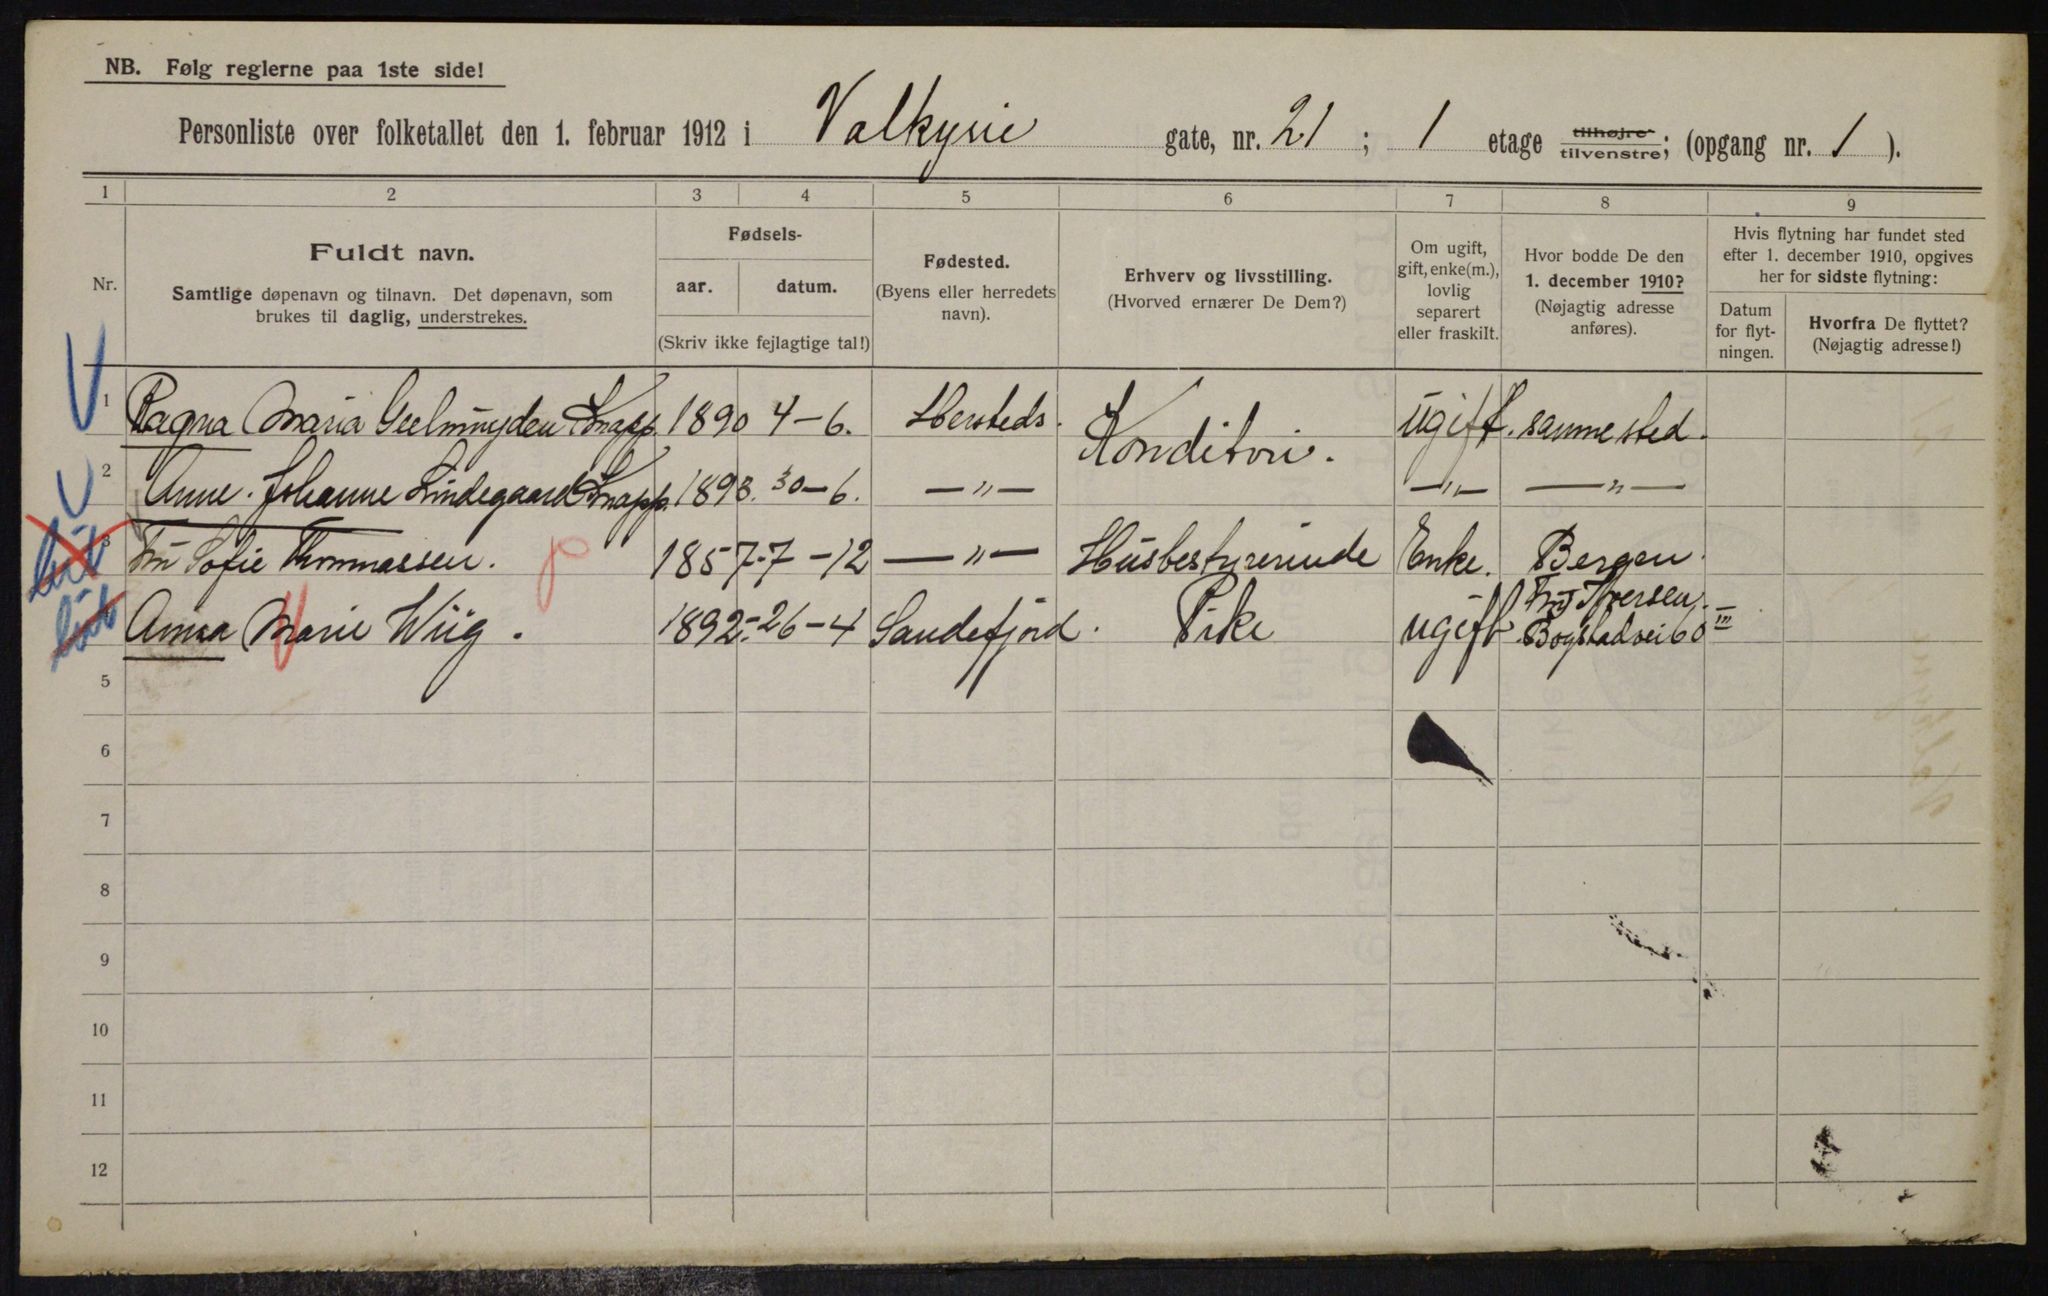 NB. Følg reglerne paa 1ste side!
Personliste over folketallet den 1. februar 1912 i Valkyrie gate, nr. 21 ; 1 etage tilhøjre tilvenstre; (opgang nr. 1 ).
1 2 3 4 5 6 7 8 9
Nr.
Fuldt navn.
Samtlige døpenavn og tilnavn. Det døpenavn, som
brukes til daglig, understrekes.
Fødsels-
aar. datum.
(Skriv ikke fejlagtige tal!)
Fødested.
(Byens eller herredets
navn).
Erhverv og livsstilling.
(Hvorved ernærer De Dem?)
Om ugift,
gift, enke(m.),
lovlig
separert
eller fraskilt.
Hvor bodde De den
1. december 1910?
(Nøjagtig adresse
anføres).
Hvis flytning har fundet sted
efter 1. december 1910, opgives
her for sidste flytning:
Datum
for flyt-
ningen.
Hvorfra De flyttet?
(Nøjagtig adresse!)
1 Ragna Maria Geelmuyden Knapp. 1890 4-6. Hersteds. Konditori. ugift. sammested.
2 Anne. Johanne Lindegaard Knapp. 1893. 30-6. —"— —"— —"—
3 Fru Sofie Thommassen. 1857.-7-12 —"— Husbestyrerinde Enke. Bergen.
Anna Marie Wiig. 1892.-26-4 Sandefjord. Pike ugift Fru Iversen. Bogstadvei 60 III
5
6
7
8
9
10
11
12